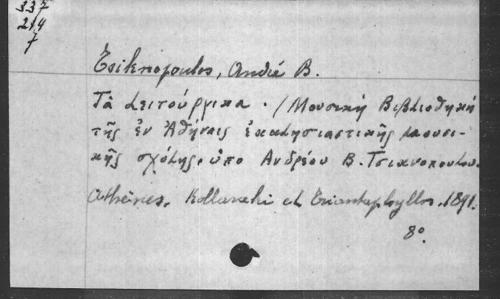 337
214
7
Tsiknopoulos, André B.
Τὰ Λειτούργικα. / Μουσικὴ Βιβλιοθηκὴ
τῆς ἐν Ἀθήναις ἐκκλησιαστικῆς μουσι-
κῆς σχόλης, ὑπο Ἀνδρέου Β. Τσικνοπουλου.
Athènes, Kollaraki et Triantaphyllos, 1891.
8°.